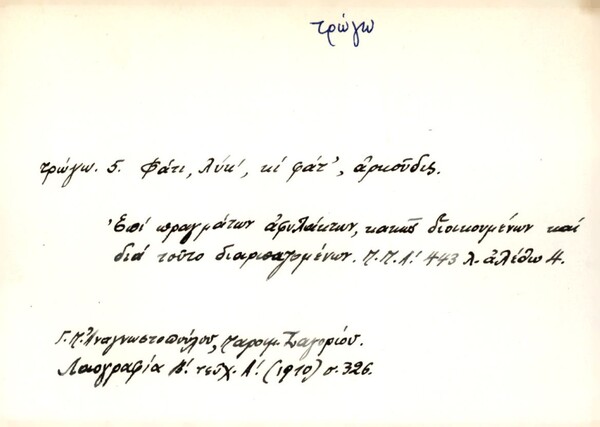 τρώγω
τρώγω. 5. Φάτι, λύκ', κί φάτ', ἀρκοῦδις.
Ἐπί πραγμάτων ἀφυλάκτων, κακῶς διοικουμένων καί
διά τοῦτο διαρπαζομένων. Π.Π.Α! 443 λ. ἀλέθω 4.
Γ.Π. Ἀναγνωστοπούλου, Παροιμ. Ζαγορίου.
Λαογραφία Β! τεῦχ. Α! (1910) σ. 326.